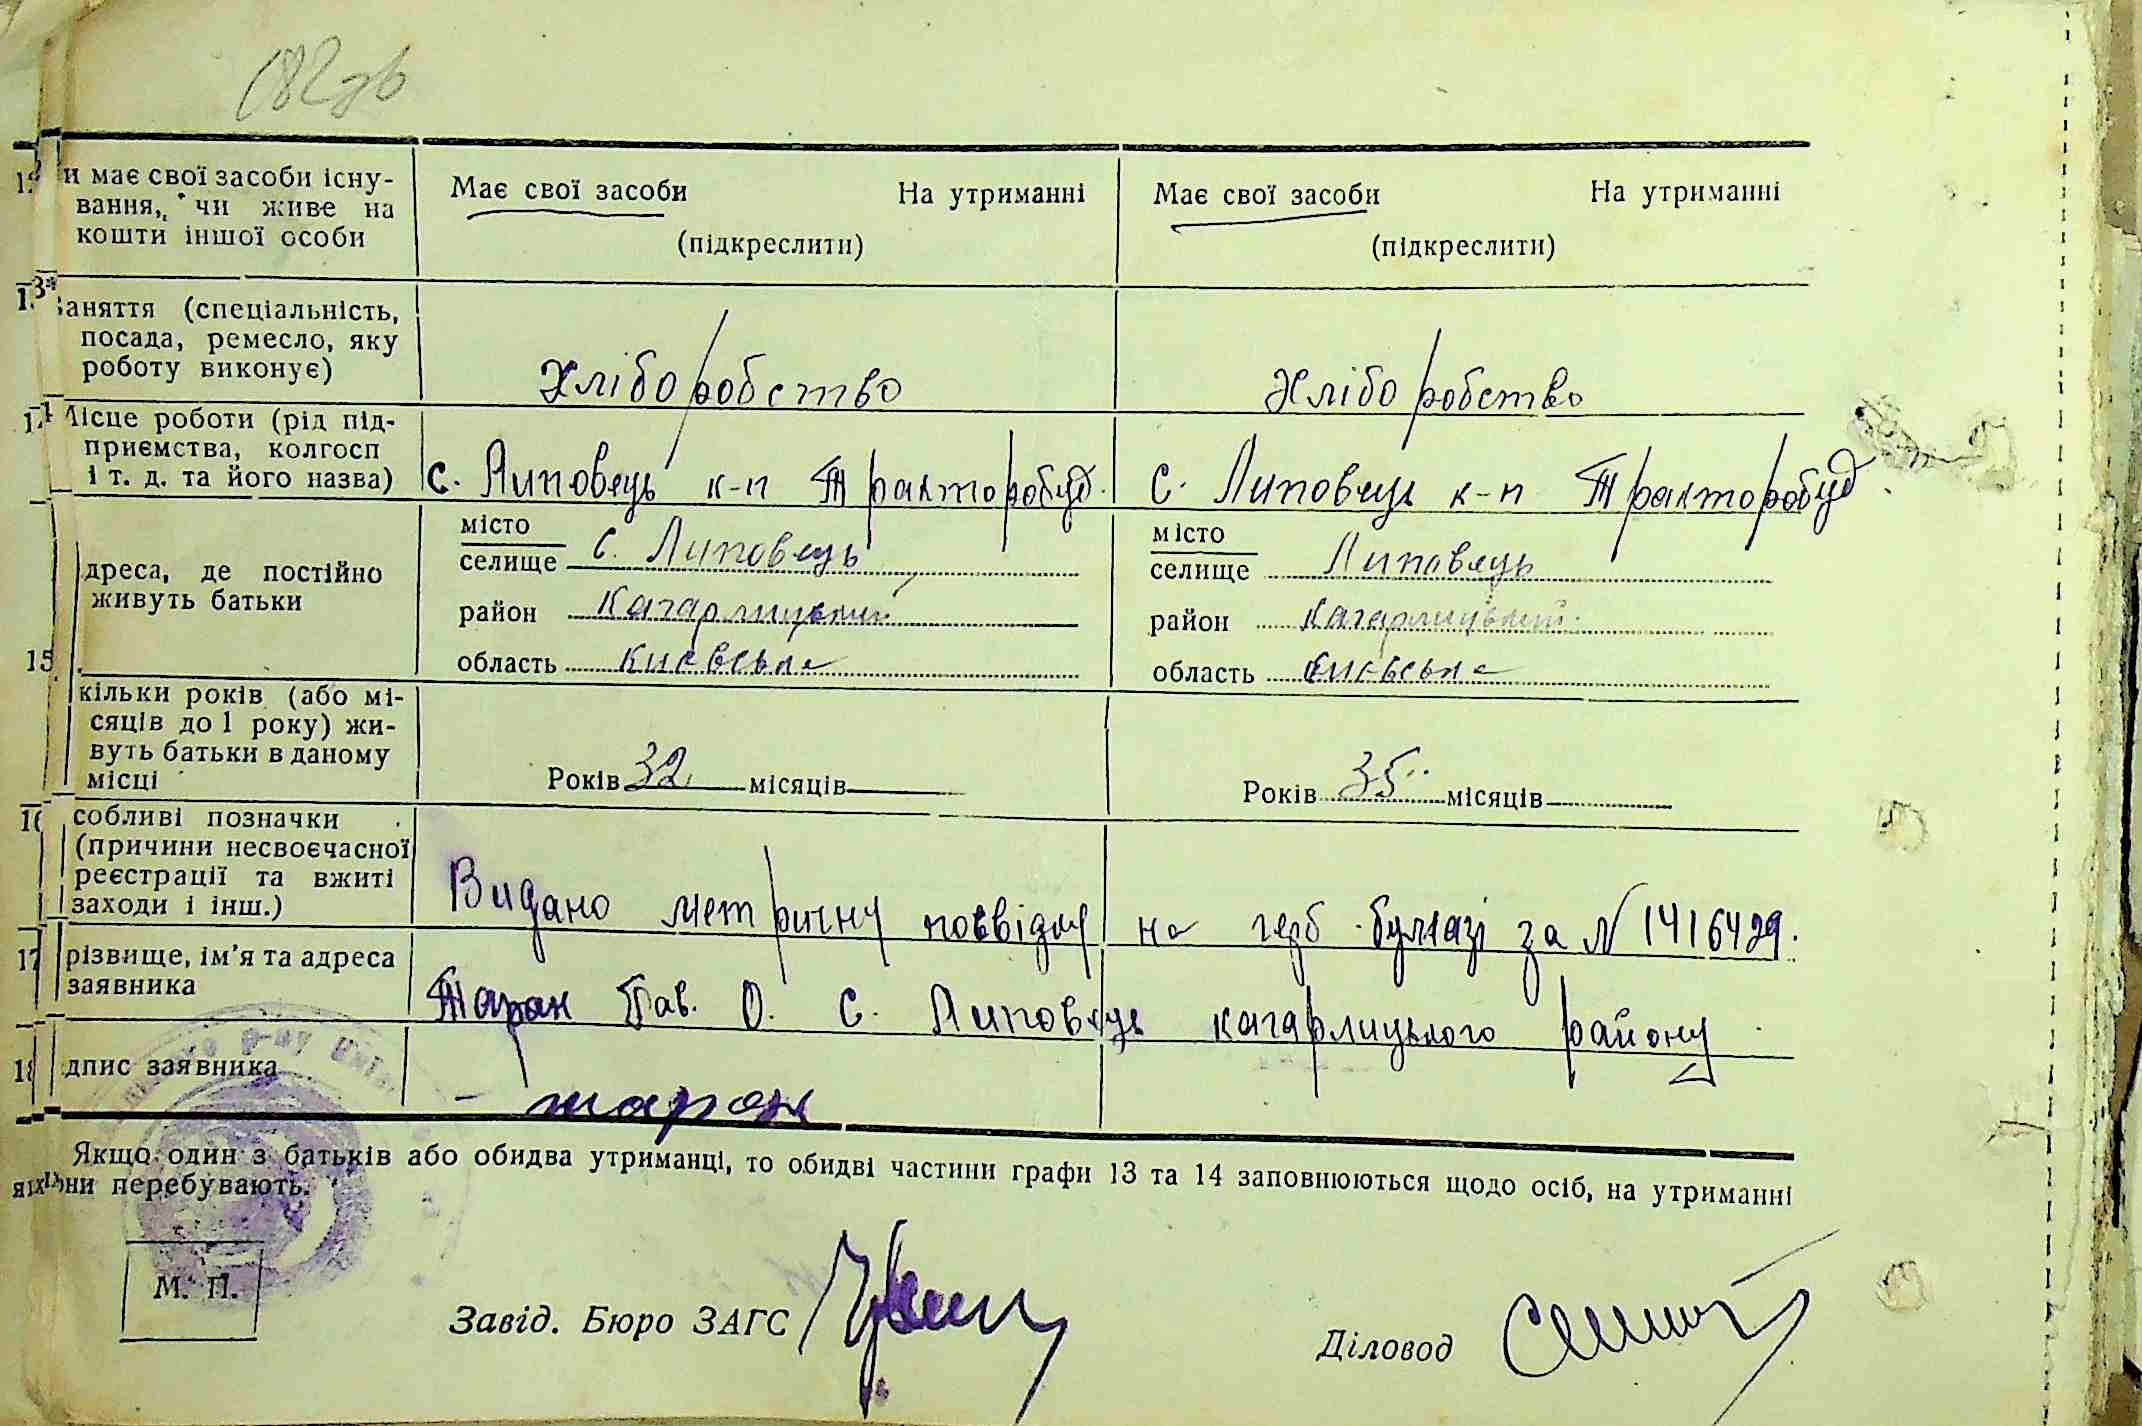 182зв
12 и має свої засоби існу-
вання, чи живе на
кошти іншої особи
Має свої засоби На утриманні
(підкреслити)
Має свої засоби На утриманні
(підкреслити)
13 аняття (спеціальність,
посада, ремесло, яку
роботу виконує)
Хліборобство
Хліборобство
14 Місце роботи (рід під-
приємства, колгосп
і т. д. та його назва)
с. Липовець к-п Тракторобуд.
с. Липовець к-п Тракторобуд
15 дреса, де постійно
живуть батьки
місто
селище с. Липовець
район Кагарлицький
область Києвська
місто
селище Липовець
район Кагарлицький
область Києвська
кільки років (або мі-
сяців до 1 року) жи-
вуть батьки в даному
місці
Років 32 місяців
Років 35 місяців
16 собливі позначки
(причини несвоєчасної
реєстрації та вжиті
заходи і інш.)
Видано метричну посвідку на герб. бумазі за № 1416429.
17 різвище, ім’я та адреса
заявника
Таран Пав. О. с. Липовець кагарлицького району
18 дпис заявника
- таран
Якщо один з батьків або обидва утриманці, то обидві частини графи 13 та 14 заповнюються щодо осіб, на утриманні
яких вони перебувають.
М. П.
Завід. Бюро ЗАГС
Діловод